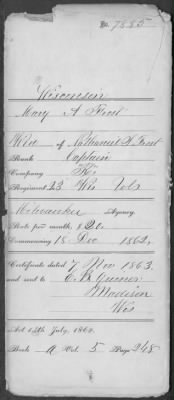 No. 7885
Wisconsin
Mary A Frost
Wid of Nathaniel S. Frost
Rank Captain
Company K.
Regiment 23 Wis Vols
Milwaukee Agency.
Rate per month, $20.
Commencing 18 Dec 1862,
Certificate dated 7 Nov 1863,
and sent to C. K.
Madison
Wis
Act 14th July, 1862.
Book A Vol. 5 Page 248